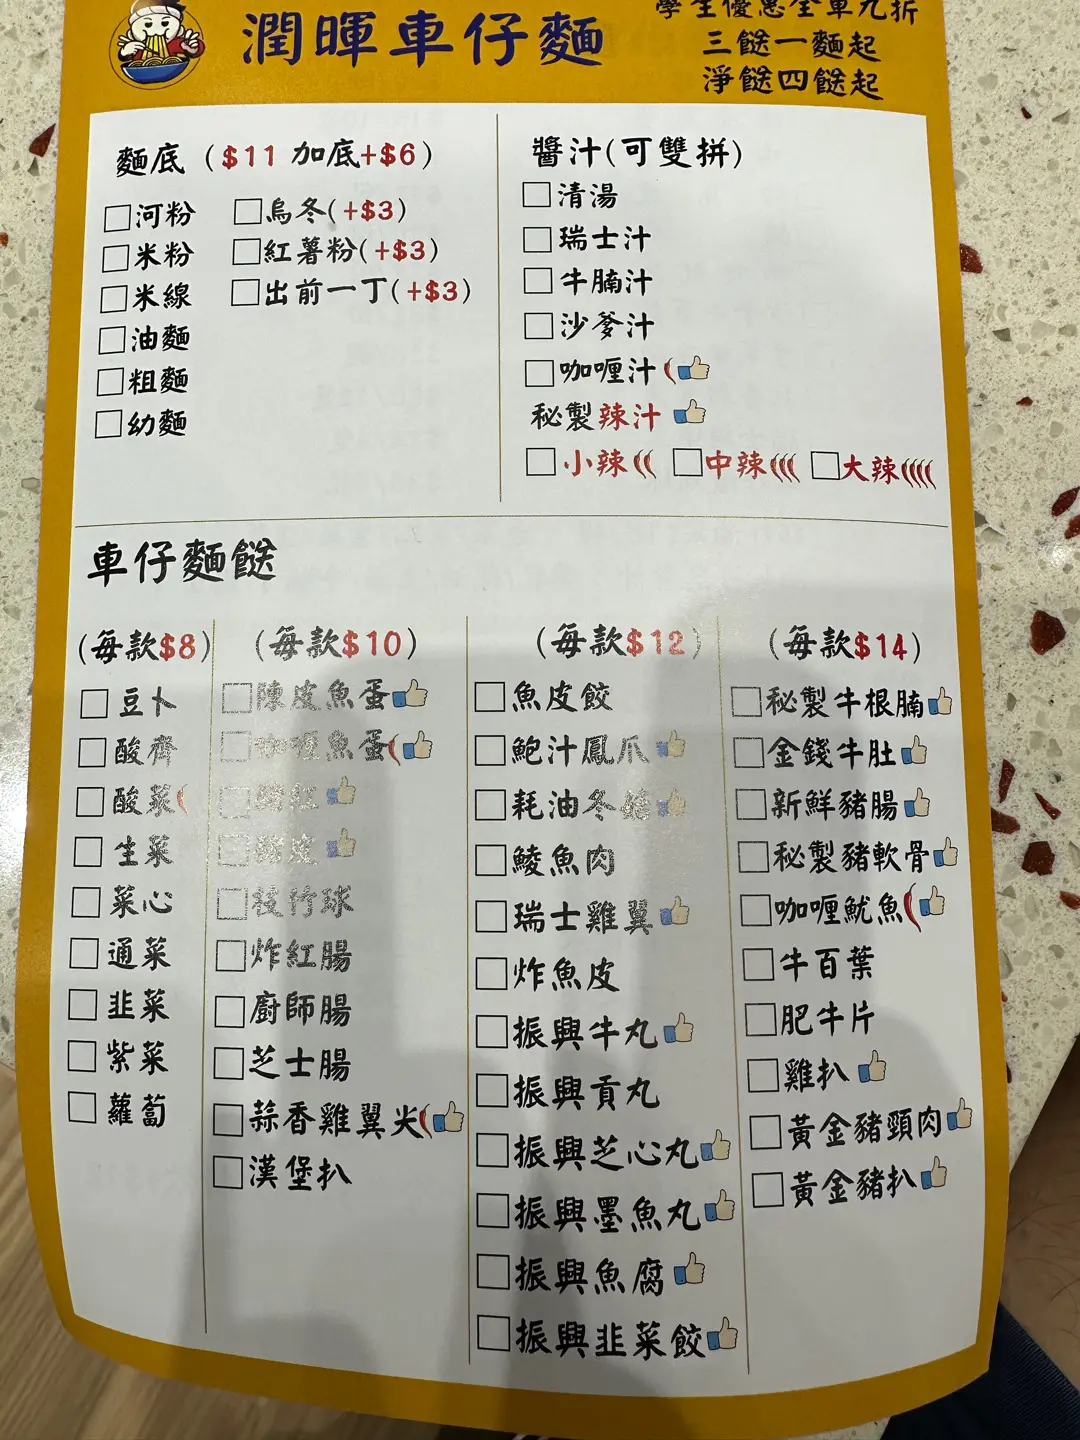 潤暉車仔麵
學生優惠全單九折
三餸一麵起
淨餸四餸起
麵底 ($11 加底+$6)
河粉
米粉
米線
油麵
粗麵
幼麵
烏冬(+$3)
紅薯粉(+$3)
出前一丁(+$3)
醬汁(可雙拼)
清湯
瑞士汁
牛腩汁
沙爹汁
咖喱汁
秘製辣汁
小辣 中辣 大辣
車仔麵餸
(每款$8)
豆卜
酸齊
酸菜
生菜
菜心
通菜
韭菜
紫菜
蘿蔔
(每款$10)
陳皮魚蛋
咖喱魚蛋
豬紅
豬皮
枝竹球
炸紅腸
廚師腸
芝士腸
蒜香雞翼尖
漢堡扒
(每款$12)
魚皮餃
鮑汁鳳爪
耗油冬菇
鯪魚肉
瑞士雞翼
炸魚皮
振興牛丸
振興貢丸
振興芝心丸
振興墨魚丸
振興魚腐
振興韭菜餃
(每款$14)
秘製牛根腩
金錢牛肚
新鮮豬腸
秘製豬軟骨
咖喱魷魚
牛百葉
肥牛片
雞扒
黃金豬頸肉
黃金豬扒